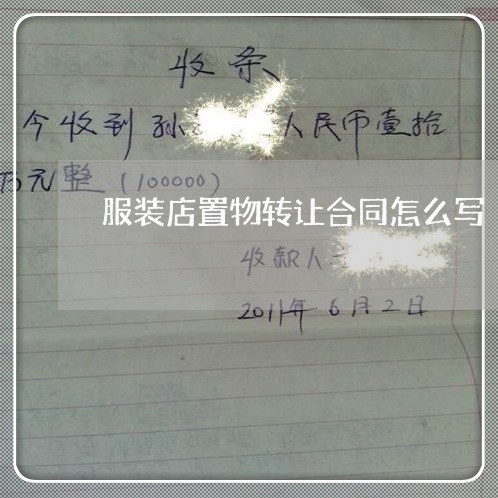 收条
今收到孙 人民币壹拾
万元整（100000）
服装店置物转让合同怎么写
收款人
2011年6月2日